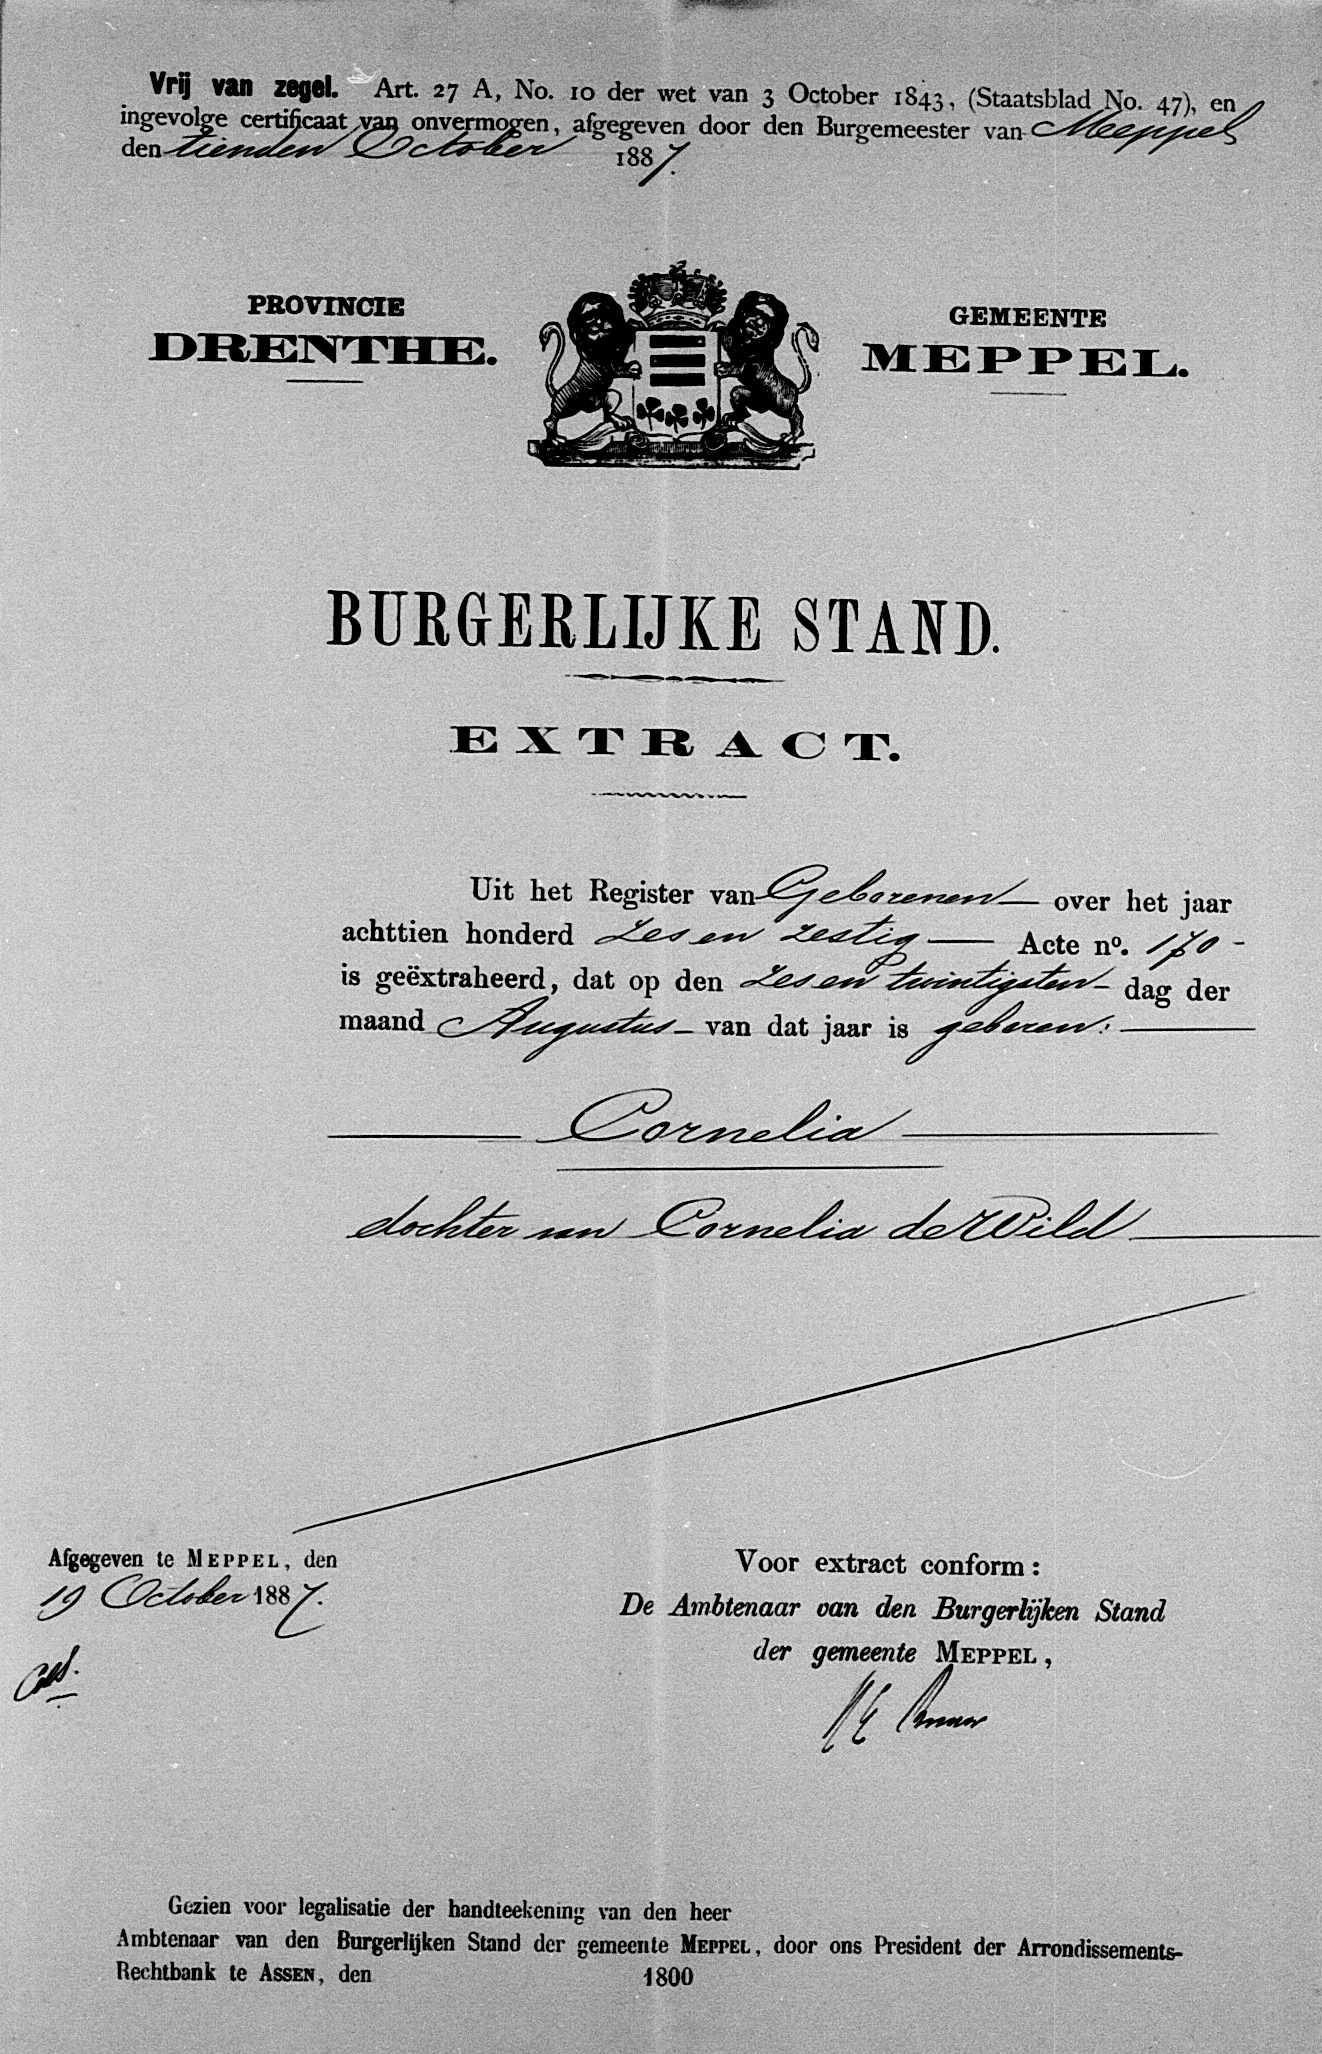 Vrij van zegel. Art. 27 A, No. 10 der wet van 3 October 1843, (Staatsblad No. 47), en
ingevolge certificaat van onvermogen, afgegeven door den Burgemeester van Meppel
den tienden October 1887.
PROVINCIE
DRENTHE.
GEMEENTE
MEPPEL.
BURGERLIJKE STAND.
EXTRACT.
Uit het Register van Geborenen over het jaar
achttien honderd zes en zestig Acte nº. 170
is geëxtraheerd, dat op den zes en twintigsten dag der
maand Augustus van dat jaar is geboren:
Cornelia
dochter van Cornelia de Wild
Afgegeven te MEPPEL, den
19 October 1887.
Voor extract conform:
De Ambtenaar van den Burgerlijken Stand
der gemeente MEPPEL,
Gezien voor legalisatie der handteekening van den heer
Ambtenaar van den Burgerlijken Stand der gemeente MEPPEL, door ons President der Arrondissements-
Rechtbank te ASSEN, den 1800